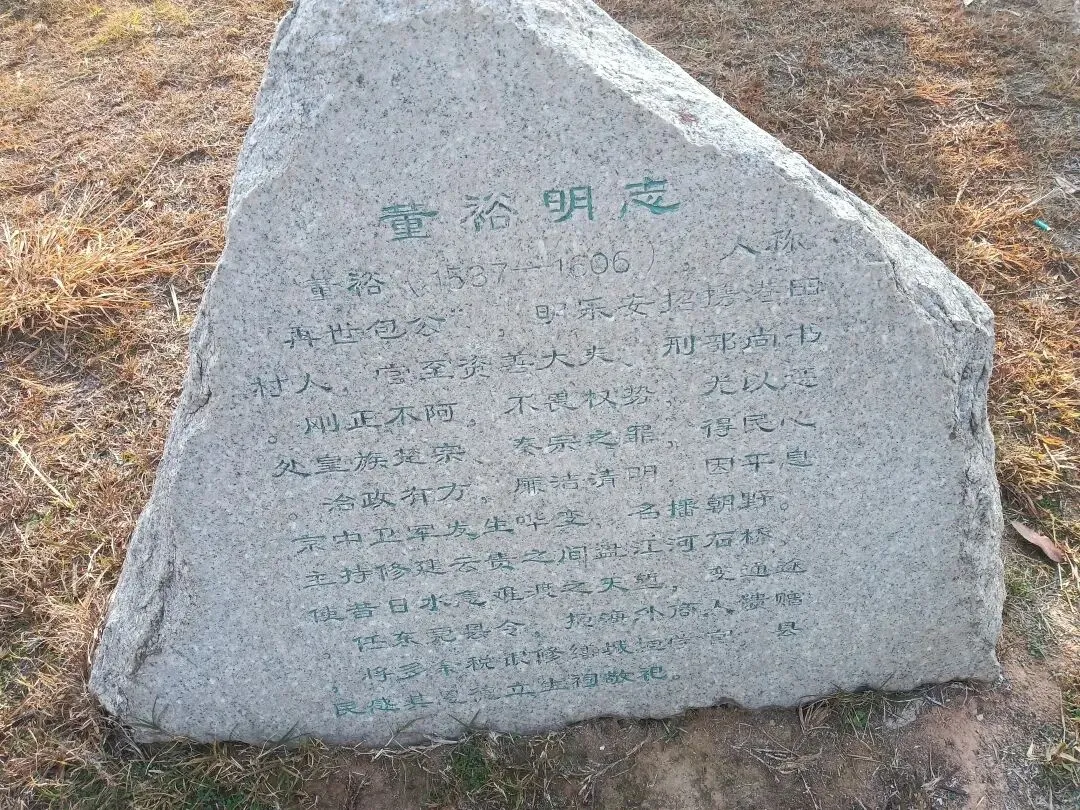 董裕明志
董裕（1537—1606），人称
“再世包公”，明乐安招携港田
村人，官至资善大夫、刑部尚书
。刚正不阿，不畏权势，尤以惩
处皇族楚宗、秦宗之罪，得民心
。治政有方，廉洁清明，因平息
京中卫军发生哗变，名播朝野。
主持修建云贵之间盘江河石桥，
使昔日水急难渡之天堑，变通途
。任东莞县令，拒海外商人馈赠
，将多余税银修缮城垣学宫，县
民感其恩德立生祠敬祀。